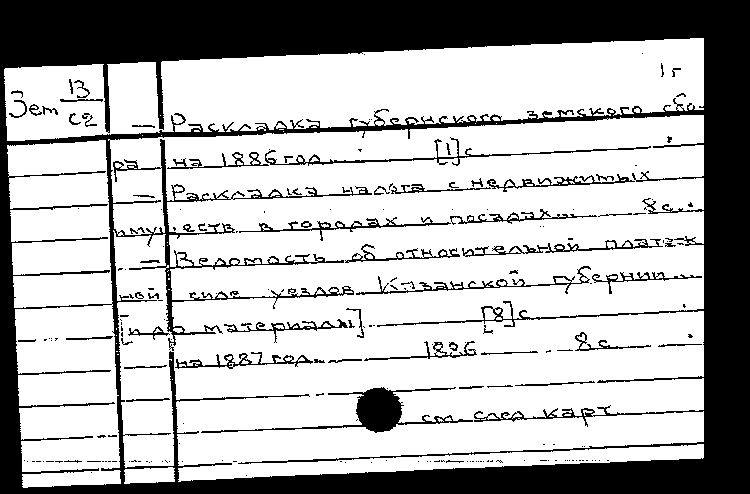 1г
Зем 13/с2 — Раскладка губернского земского сбо-
ра на 1886 год... [1] с.
— Раскладка налога с недвижимых
имуществ в городах и посадах... 8 с.
— Ведомость об относительной платеж
ной силе уездов Казанской губернии...
[и др материалы]. [8] с.
на 1887 год... 1886. 8 с.
см. след. карт.